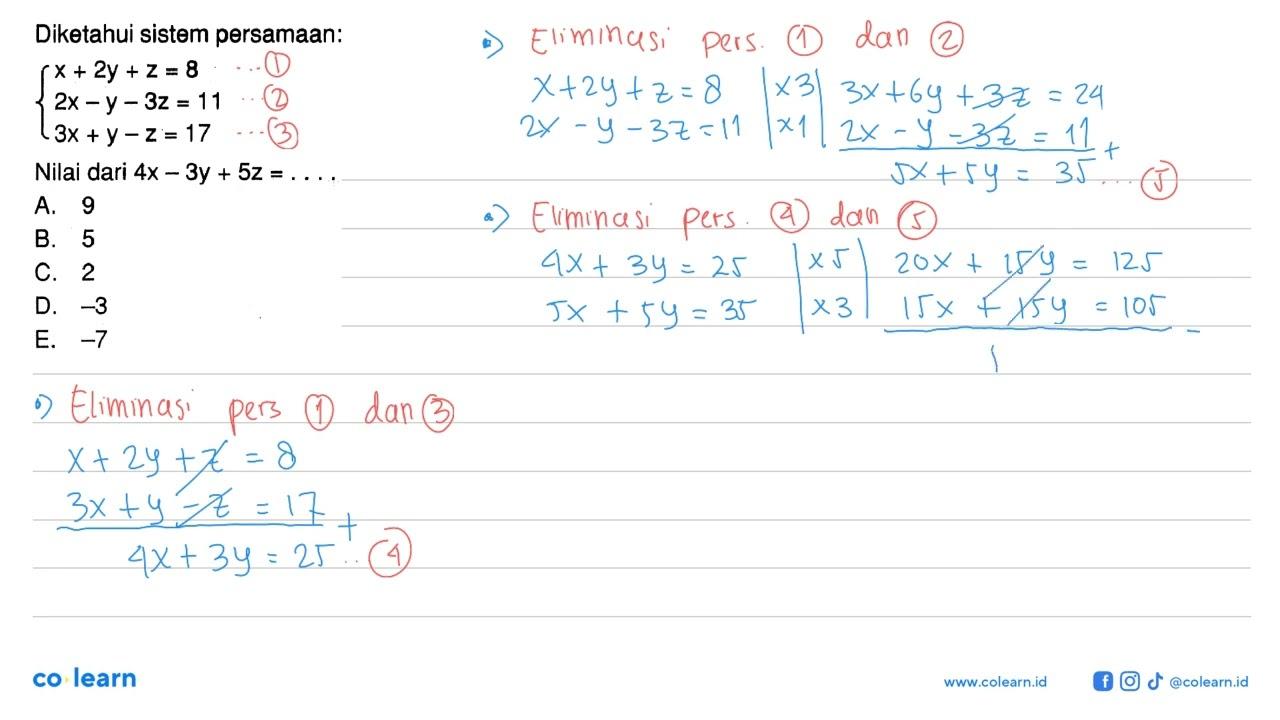 Diketahui sistem persamaan:
x + 2y + z = 8 ... ①
2x – y – 3z = 11 ... ②
3x + y – z = 17 ... ③
Nilai dari 4x – 3y + 5z = . . . .
A. 9
B. 5
C. 2
D. –3
E. –7
Eliminasi pers ① dan ③
x + 2y + z = 8
3x + y - z = 17 +
4x + 3y = 25 .. ④
Eliminasi pers. ① dan ②
x + 2y + z = 8 | x3 | 3x + 6y + 3z = 24
2x - y - 3z = 11 | x1 | 2x - y - 3z = 11 +
5x + 5y = 35 ... ⑤
Eliminasi pers. ④ dan ⑤
4x + 3y = 25 | x5 | 20x + 15y = 125
5x + 5y = 35 | x3 | 15x + 15y = 105 -
co learn
www.colearn.id
@colearn.id